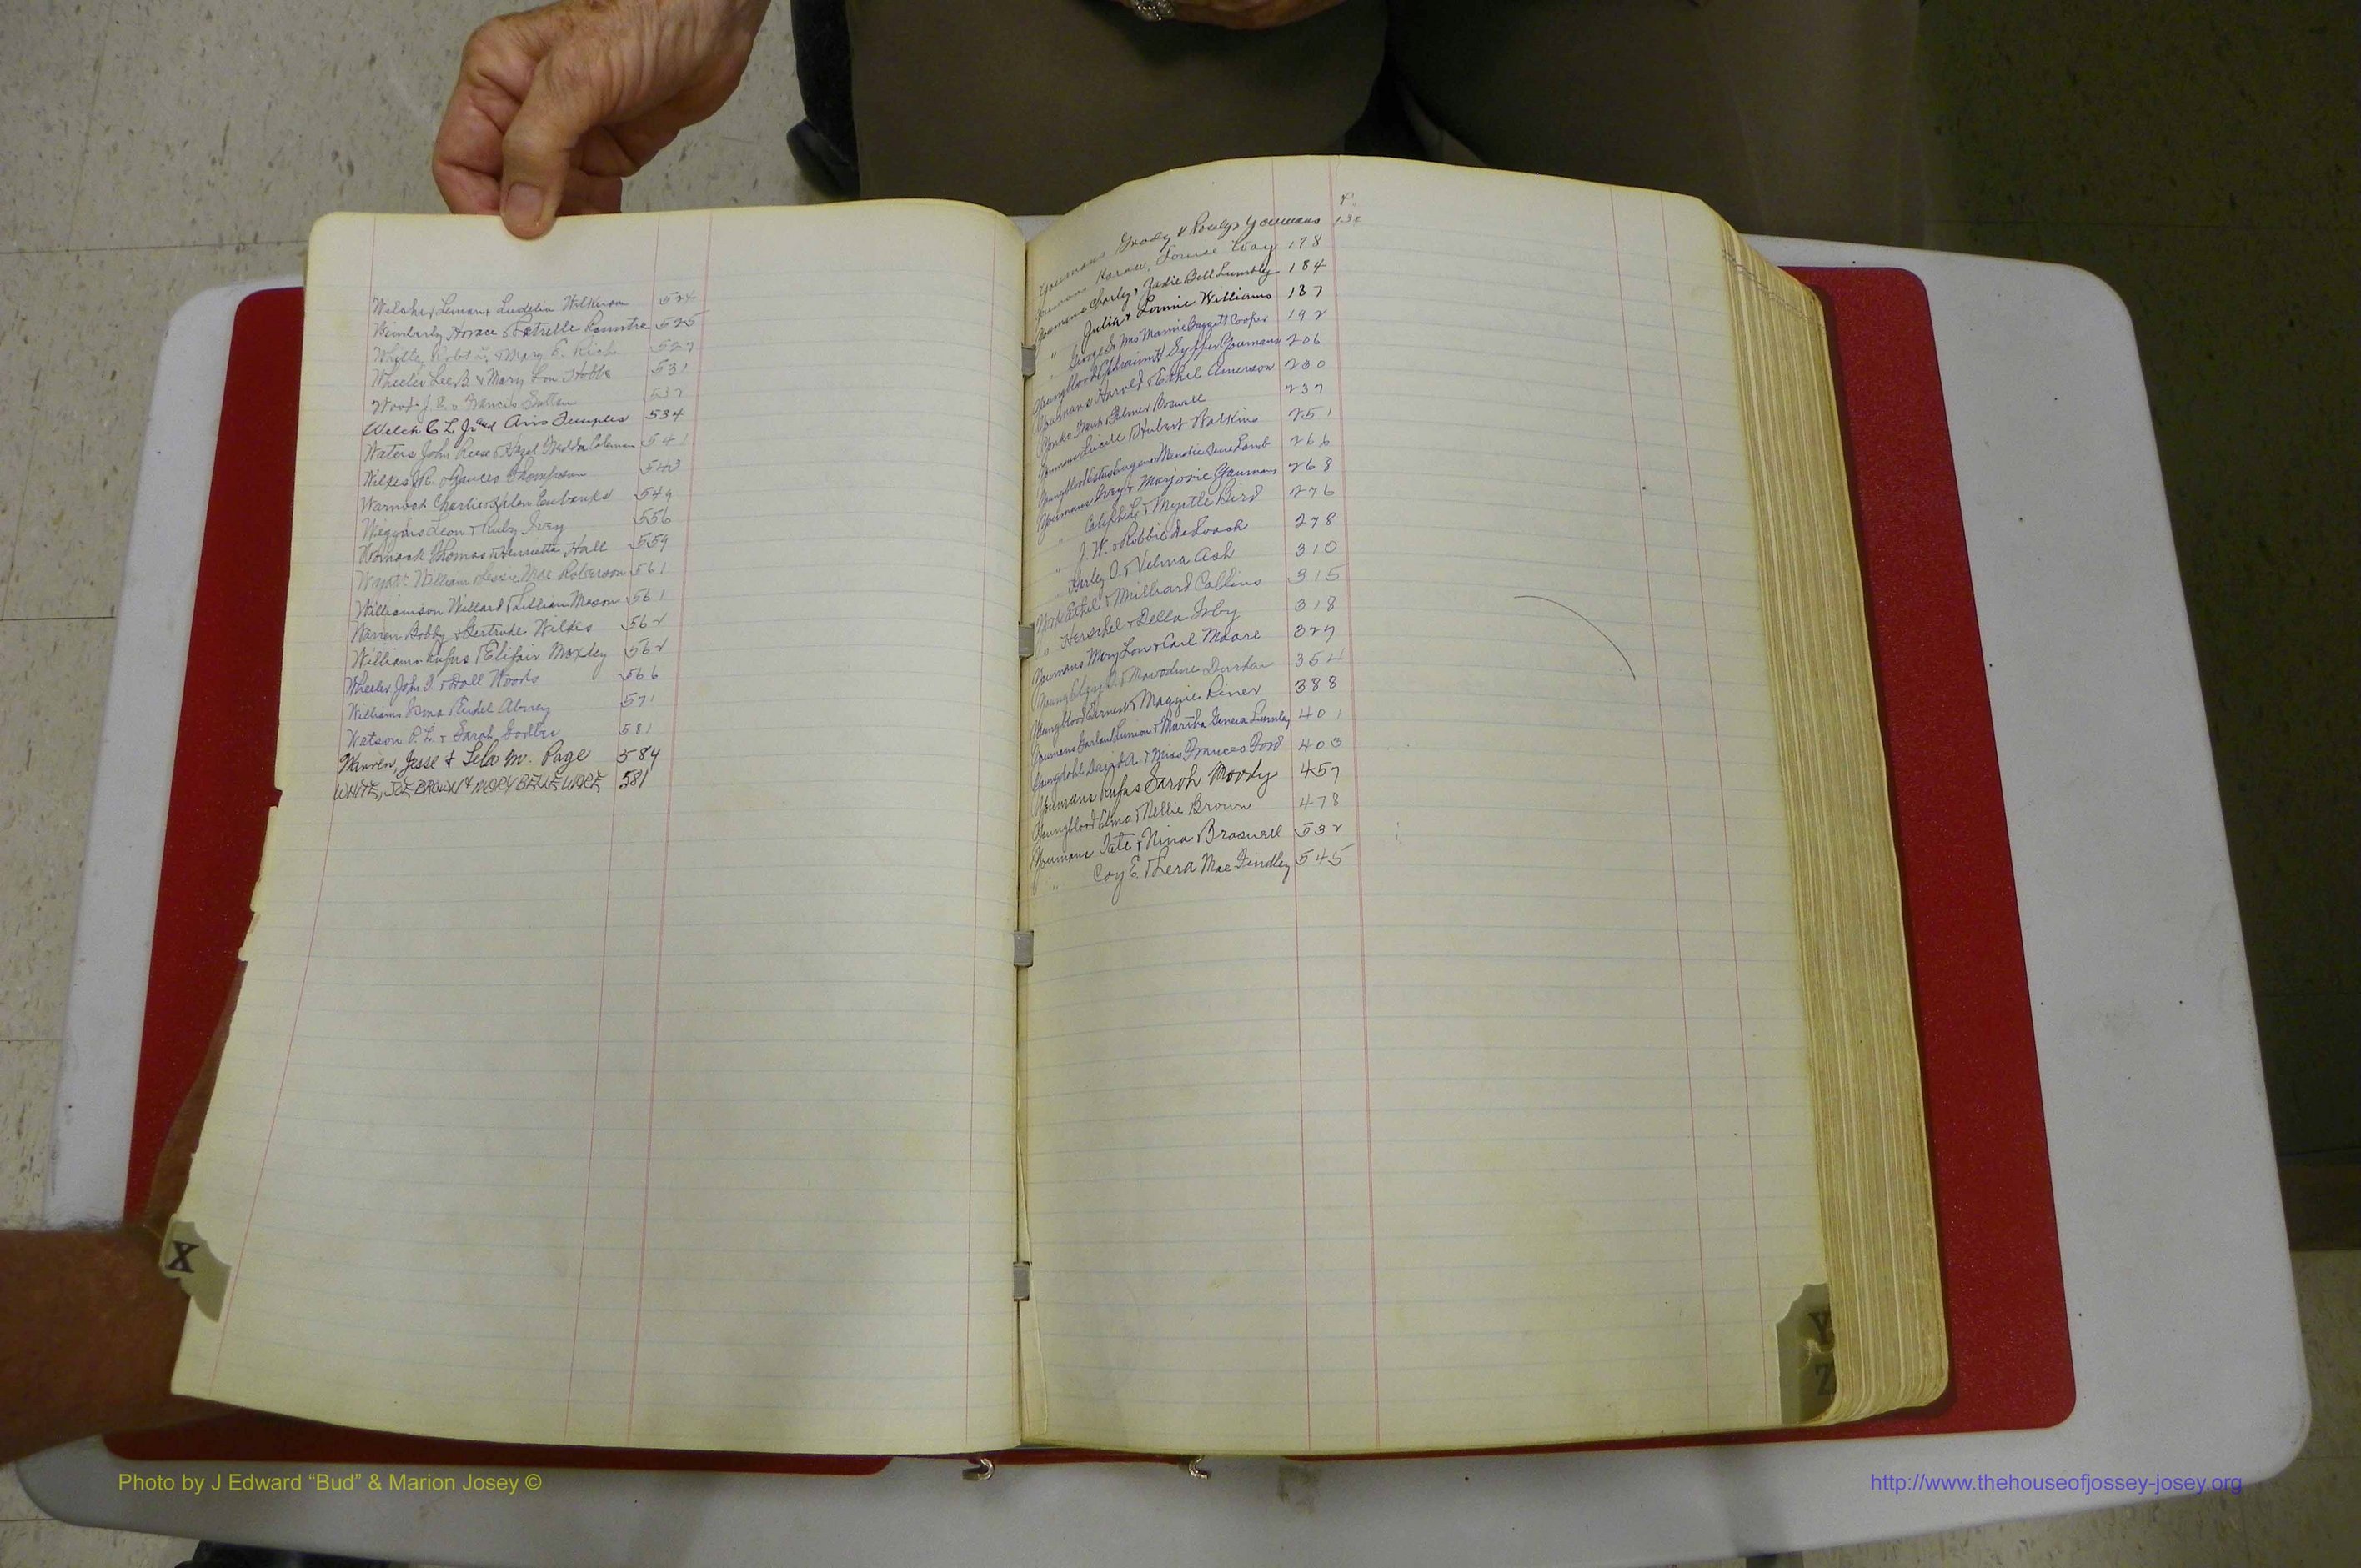 Wilcher Leman & Ludelia Wilkerson 524
Kimberly Horace & Estrelle Rountre 525
Whitley Robt L. & Mary E. Rich 527
Wheeler Lee B. & Mary Lou Hobbs 531
J. E. & Francis Sutton 532
Welch C L Jr and Avis Temples 534
Waters John Reese & Hazel Coleman 541
Wilkes J.R. & Frances Thompson 543
Warnock Charlie & Helen Eubanks 549
Wiggins Leon & Ruby Ivey 556
Warnock Thomas & Henrietta Hall 559
Wyatt William & Jessie Mae Roberson 561
Williamson Willard & Lillian Mason 561
Warren Bobby & Gertrude Wilkes 562
Williams Rufus & Elifair Moxley 562
Wheeler John & Doll Woods 566
Williams & Eudel Abney 571
Watson P. L. & Sarah 581
Warren, Jesse & Lela M. Page 584
WHITE, JOE BROWN & MARY BELLE WARE 581
X
P.
Youmans Grady & Youmans 130
Youmans Horace, Louise Way 178
Youmans Charley & Zadie Bell Lumbley 184
" Julia & Lonnie Williams 187
" George & Mrs Mamie Baggett Cooper 192
Youngblood & Youmans 206
Youmans Harold & Ethel Amerson 230
Frank & Elmer Boswell 237
Youmans Lucile & Hubert Watkins 251
Youngblood Eugene & Lamb 266
Youmans Ivey & Marjorie Youmans 268
" & Myrtle Bird 276
" J. W. & Robbie DeLoach 278
" Harley O. & Velma Ash 310
Ethel & Milliard Collins 315
" Herschel & Della Irby 318
Youmans Mary Lou & Carl Moore 327
Young & Durden 354
Youngblood Earnest & Maggie Riner 388
Youmans & Martha Geneva Lumley 401
David A. & Miss Frances Ford 403
Youmans Rufus Sarah Moody 457
Youngblood Elmo & Nellie Brown 478
Youmans Tate & Nina Braswell 532
" Coy E. & Lera Mae Findley 545
Y
Z
Photo by J Edward “Bud” & Marion Josey ©
http://www.thehouseofjossey-josey.org